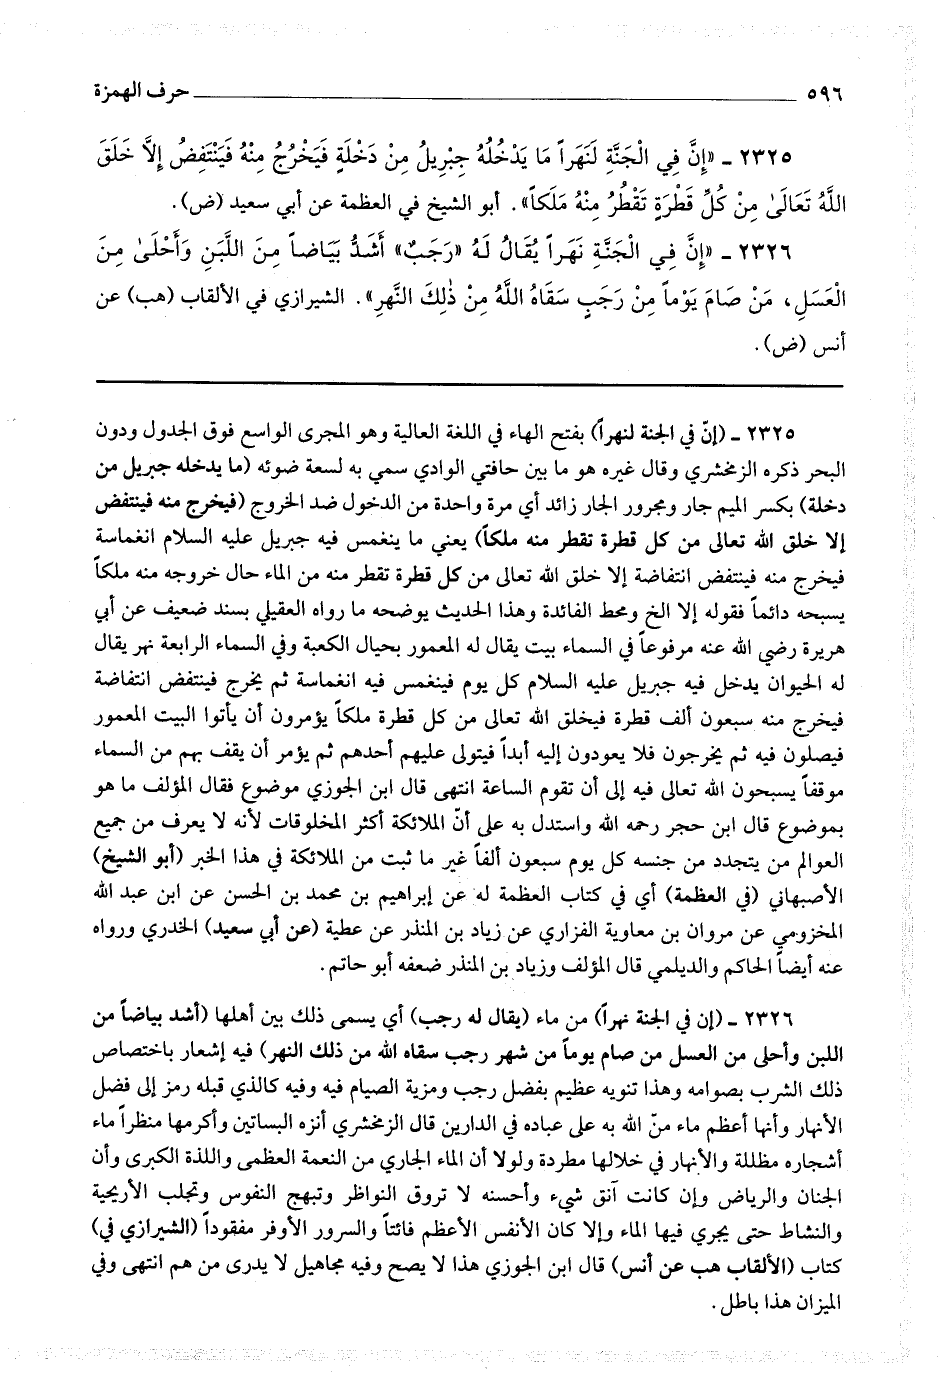 ٥٩٦ حرف الهمزة
٢٣٢٥ ـ «إِنَّ فِي الْجَنَّةِ لَنَهَراً مَا يَدْخُلُهُ جِبْرِيلُ مِنْ دَخْلَةٍ فَيَخْرُجُ مِنْهُ فَيَنْتَفِضُ إِلاَّ خَلَقَ
اللَّهُ تَعَالَىٰ مِنْ كُلِّ قَطْرَةٍ تَقْطُرُ مِنْهُ مَلَكاً». أبو الشيخ في العظمة عن أبي سعيد (ض).
٢٣٢٦ ـ «إِنَّ فِي الْجَنَّةِ نَهَراً يُقَالُ لَهُ «رَجَبٌ» أَشَدُّ بَيَاضاً مِنَ اللَّبَنِ وَأَحْلَىٰ مِنَ
الْعَسَلِ، مَنْ صَامَ يَوْماً مِنْ رَجَبٍ سَقَاهُ اللَّهُ مِنْ ذٰلِكَ النَّهرِ». الشيرازي في الألقاب (هب) عن
أنس (ض).
٢٣٢٥ ـ (إنّ في الجنة لنهراً) بفتح الهاء في اللغة العالية وهو المجرى الواسع فوق الجدول ودون
البحر ذكره الزمخشري وقال غيره هو ما بين حافتي الوادي سمي به لسعة ضوئه (ما يدخله جبريل من
دخلة) بكسر الميم جار ومجرور الجار زائد أي مرة واحدة من الدخول ضد الخروج (فيخرج منه فينتفض
إلا خلق الله تعالى من كل قطرة تقطر منه ملكاً) يعني ما ينغمس فيه جبريل عليه السلام انغماسة
فيخرج منه فينتفض انتفاضة إلا خلق الله تعالى من كل قطرة تقطر منه من الماء حال خروجه منه ملكاً
يسبحه دائماً فقوله إلا الخ ومحط الفائدة وهذا الحديث يوضحه ما رواه العقيلي بسند ضعيف عن أبي
هريرة رضي الله عنه مرفوعاً في السماء بيت يقال له المعمور بحيال الكعبة وفي السماء الرابعة نهر يقال
له الحيوان يدخل فيه جبريل عليه السلام كل يوم فينغمس فيه انغماسة ثم يخرج فينتفض انتفاضة
فيخرج منه سبعون ألف قطرة فيخلق الله تعالى من كل قطرة ملكاً يؤمرون أن يأتوا البيت المعمور
فيصلون فيه ثم يخرجون فلا يعودون إليه أبداً فيتولى عليهم أحدهم ثم يؤمر أن يقف بهم من السماء
موقفاً يسبحون الله تعالى فيه إلى أن تقوم الساعة انتهى قال ابن الجوزي موضوع فقال المؤلف ما هو
بموضوع قال ابن حجر رحمه الله واستدل به على أنّ الملائكة أكثر المخلوقات لأنه لا يعرف من جميع
العوالم من يتجدد من جنسه كل يوم سبعون ألفاً غير ما ثبت من الملائكة في هذا الخبر (أبو الشيخ)
الأصبهاني (في العظمة) أي في كتاب العظمة له عن إبراهيم بن محمد بن الحسن عن ابن عبد الله
المخزومي عن مروان بن معاوية الفزاري عن زياد بن المنذر عن عطية (عن أبي سعيد) الخدري ورواه
عنه أيضاً الحاكم والديلمي قال المؤلف وزياد بن المنذر ضعفه أبو حاتم.
٢٣٢٦ ـ (إن في الجنة نهراً) من ماء (يقال له رجب) أي يسمى ذلك بين أهلها (أشد بياضاً من
اللبن وأحلى من العسل من صام يوماً من شهر رجب سقاه الله من ذلك النهر) فيه إشعار باختصاص
ذلك الشرب بصوامه وهذا تنويه عظيم بفضل رجب ومزية الصيام فيه وفيه كالذي قبله رمز إلى فضل
الأنهار وأنها أعظم ماء منّ الله به على عباده في الدارين قال الزمخشري أنزه البساتين وأكرمها منظراً ماء
أشجاره مظللة والأنهار في خلالها مطردة ولولا أن الماء الجاري من النعمة العظمى واللذة الكبرى وأن
الجنان والرياض وإن كانت آنق شيء وأحسنه لا تروق النواظر وتبهج النفوس وتجلب الأريحية
والنشاط حتى يجري فيها الماء وإلا كان الأنفس الأعظم فائتاً والسرور الأوفر مفقوداً (الشيرازي في)
كتاب (الألقاب هب عن أنس) قال ابن الجوزي هذا لا يصح وفيه مجاهيل لا يدرى من هم انتهى وفي
الميزان هذا باطل.